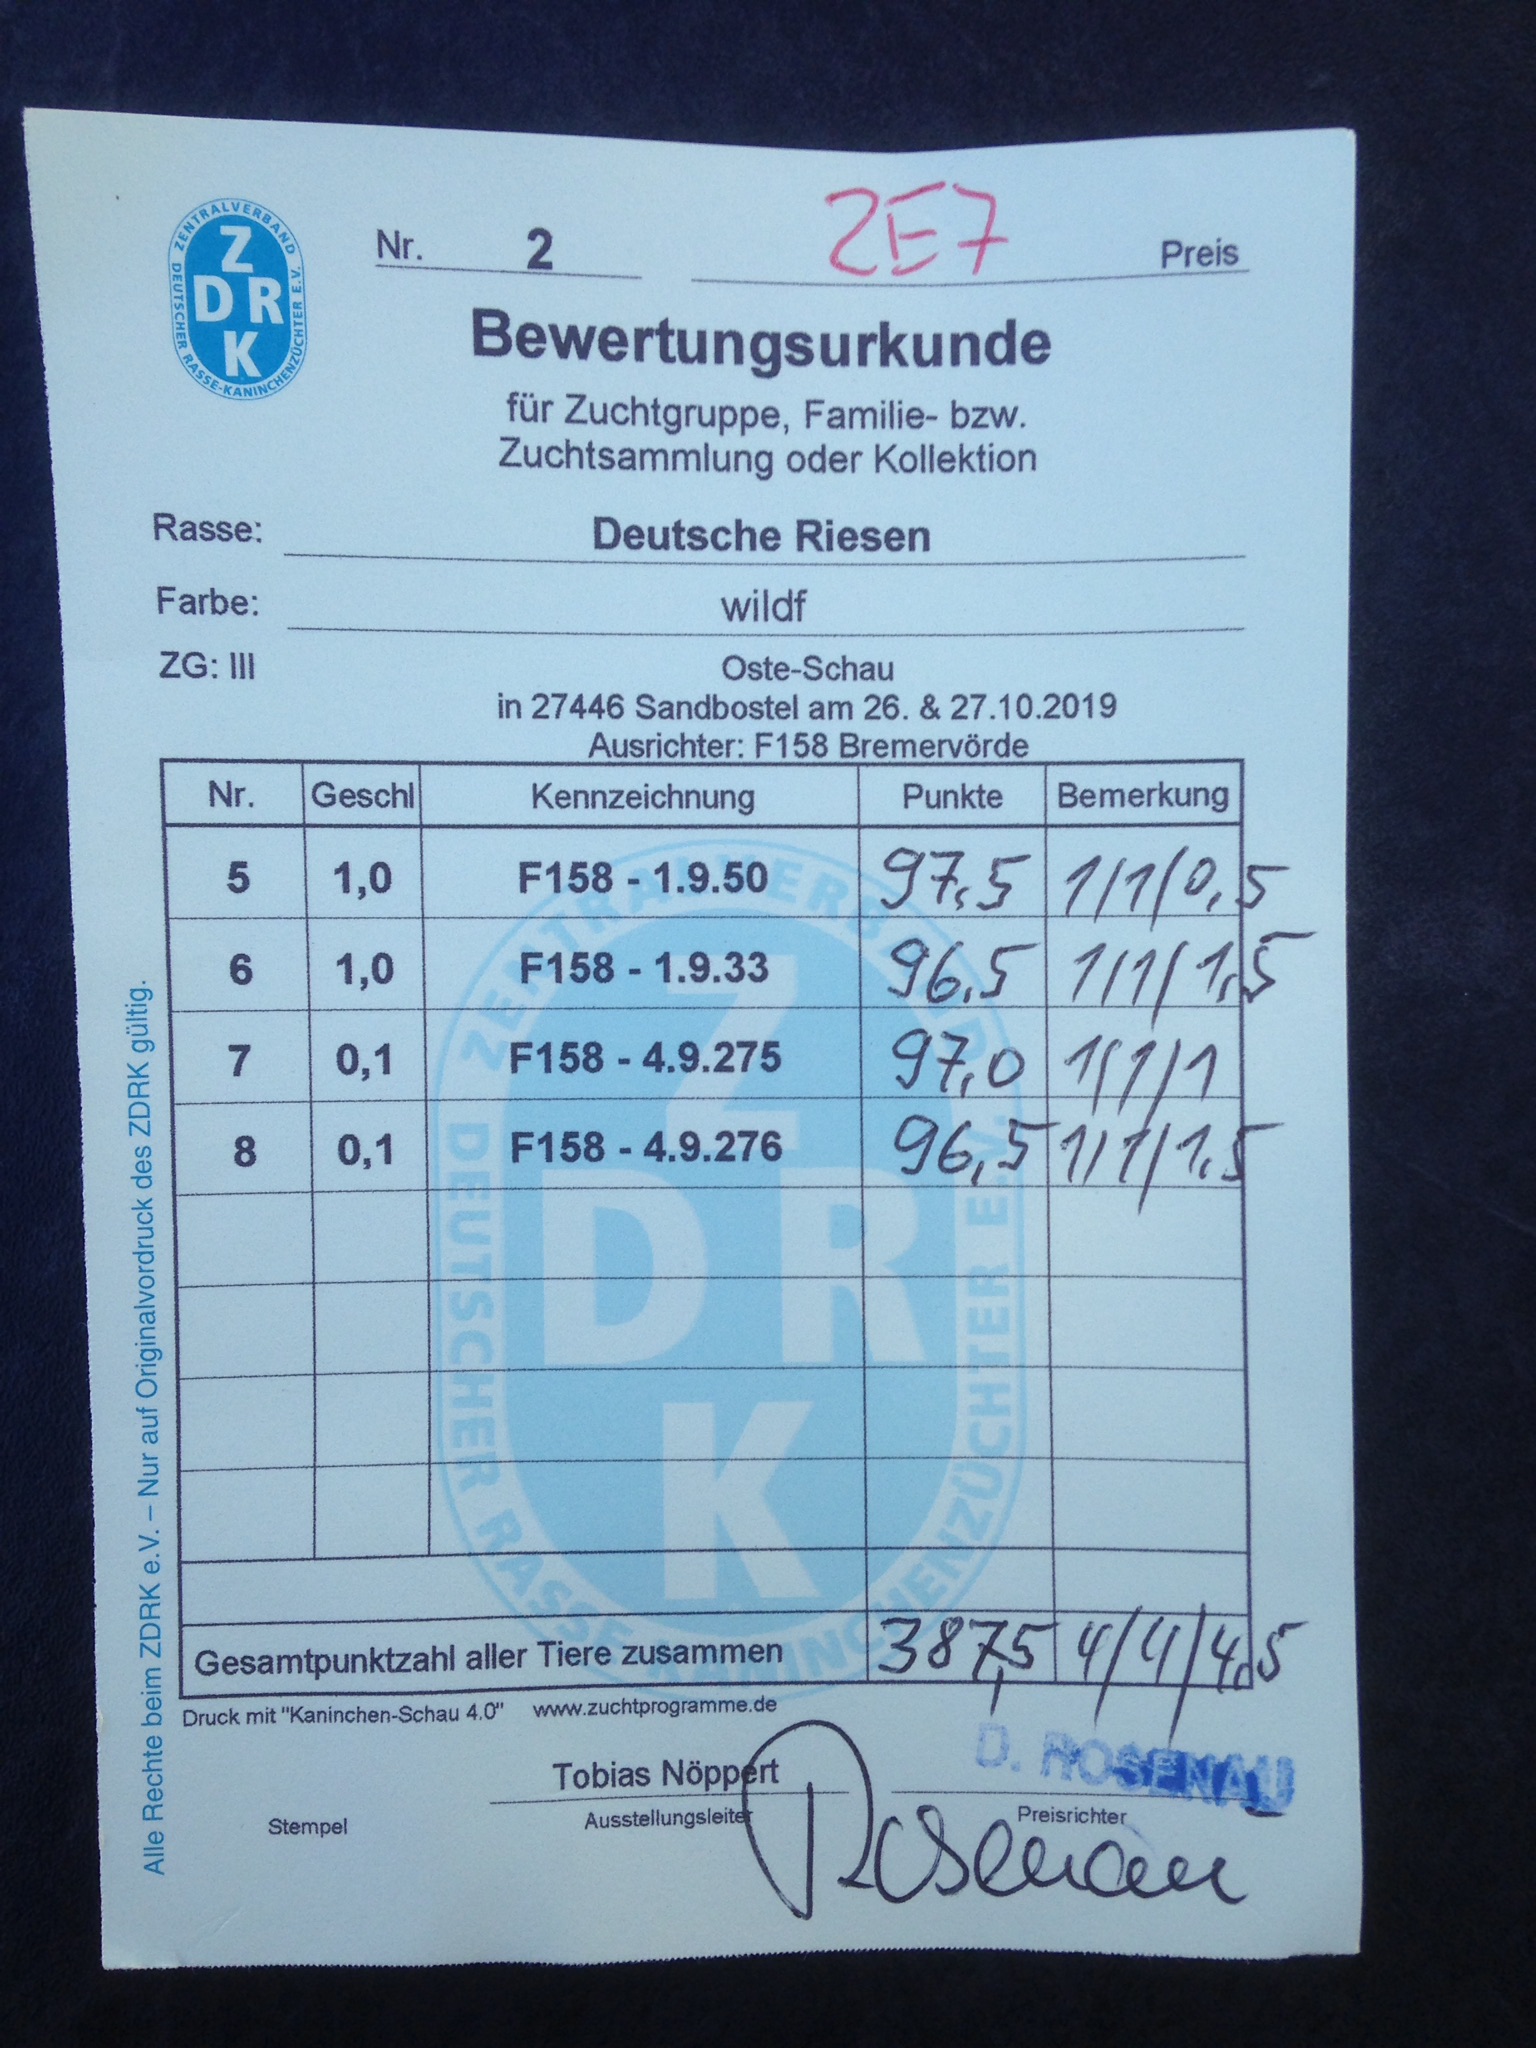 ZENTRALVERBAND DEUTSCHER RASSE-KANINCHENZÜCHTER E.V.
Z
DR
K
Nr. 2 2E7 Preis
Bewertungsurkunde
für Zuchtgruppe, Familie- bzw.
Zuchtsammlung oder Kollektion
Rasse: Deutsche Riesen
Farbe: wildf
ZG: III Oste-Schau
in 27446 Sandbostel am 26. & 27.10.2019
Ausrichter: F158 Bremervörde
Nr. Geschl Kennzeichnung Punkte Bemerkung
5 1,0 F158 - 1.9.50 97,5 1/1/0,5
6 1,0 F158 - 1.9.33 96,5 1/1/1,5
7 0,1 F158 - 4.9.275 97,0 1/1/1
8 0,1 F158 - 4.9.276 96,5 1/1/1,5
ZENTRALVERBAND DEUTSCHER RASSE-KANINCHENZÜCHTER E.V.
Z
DR
K
Gesamtpunktzahl aller Tiere zusammen 387,5 4/4/4,5
Druck mit "Kaninchen-Schau 4.0" www.zuchtprogramme.de
Tobias Nöppert D. ROSENAU
Stempel Ausstellungsleiter Preisrichter
D. Rosenau
Alle Rechte beim ZDRK e.V. – Nur auf Originalvordruck des ZDRK gültig.